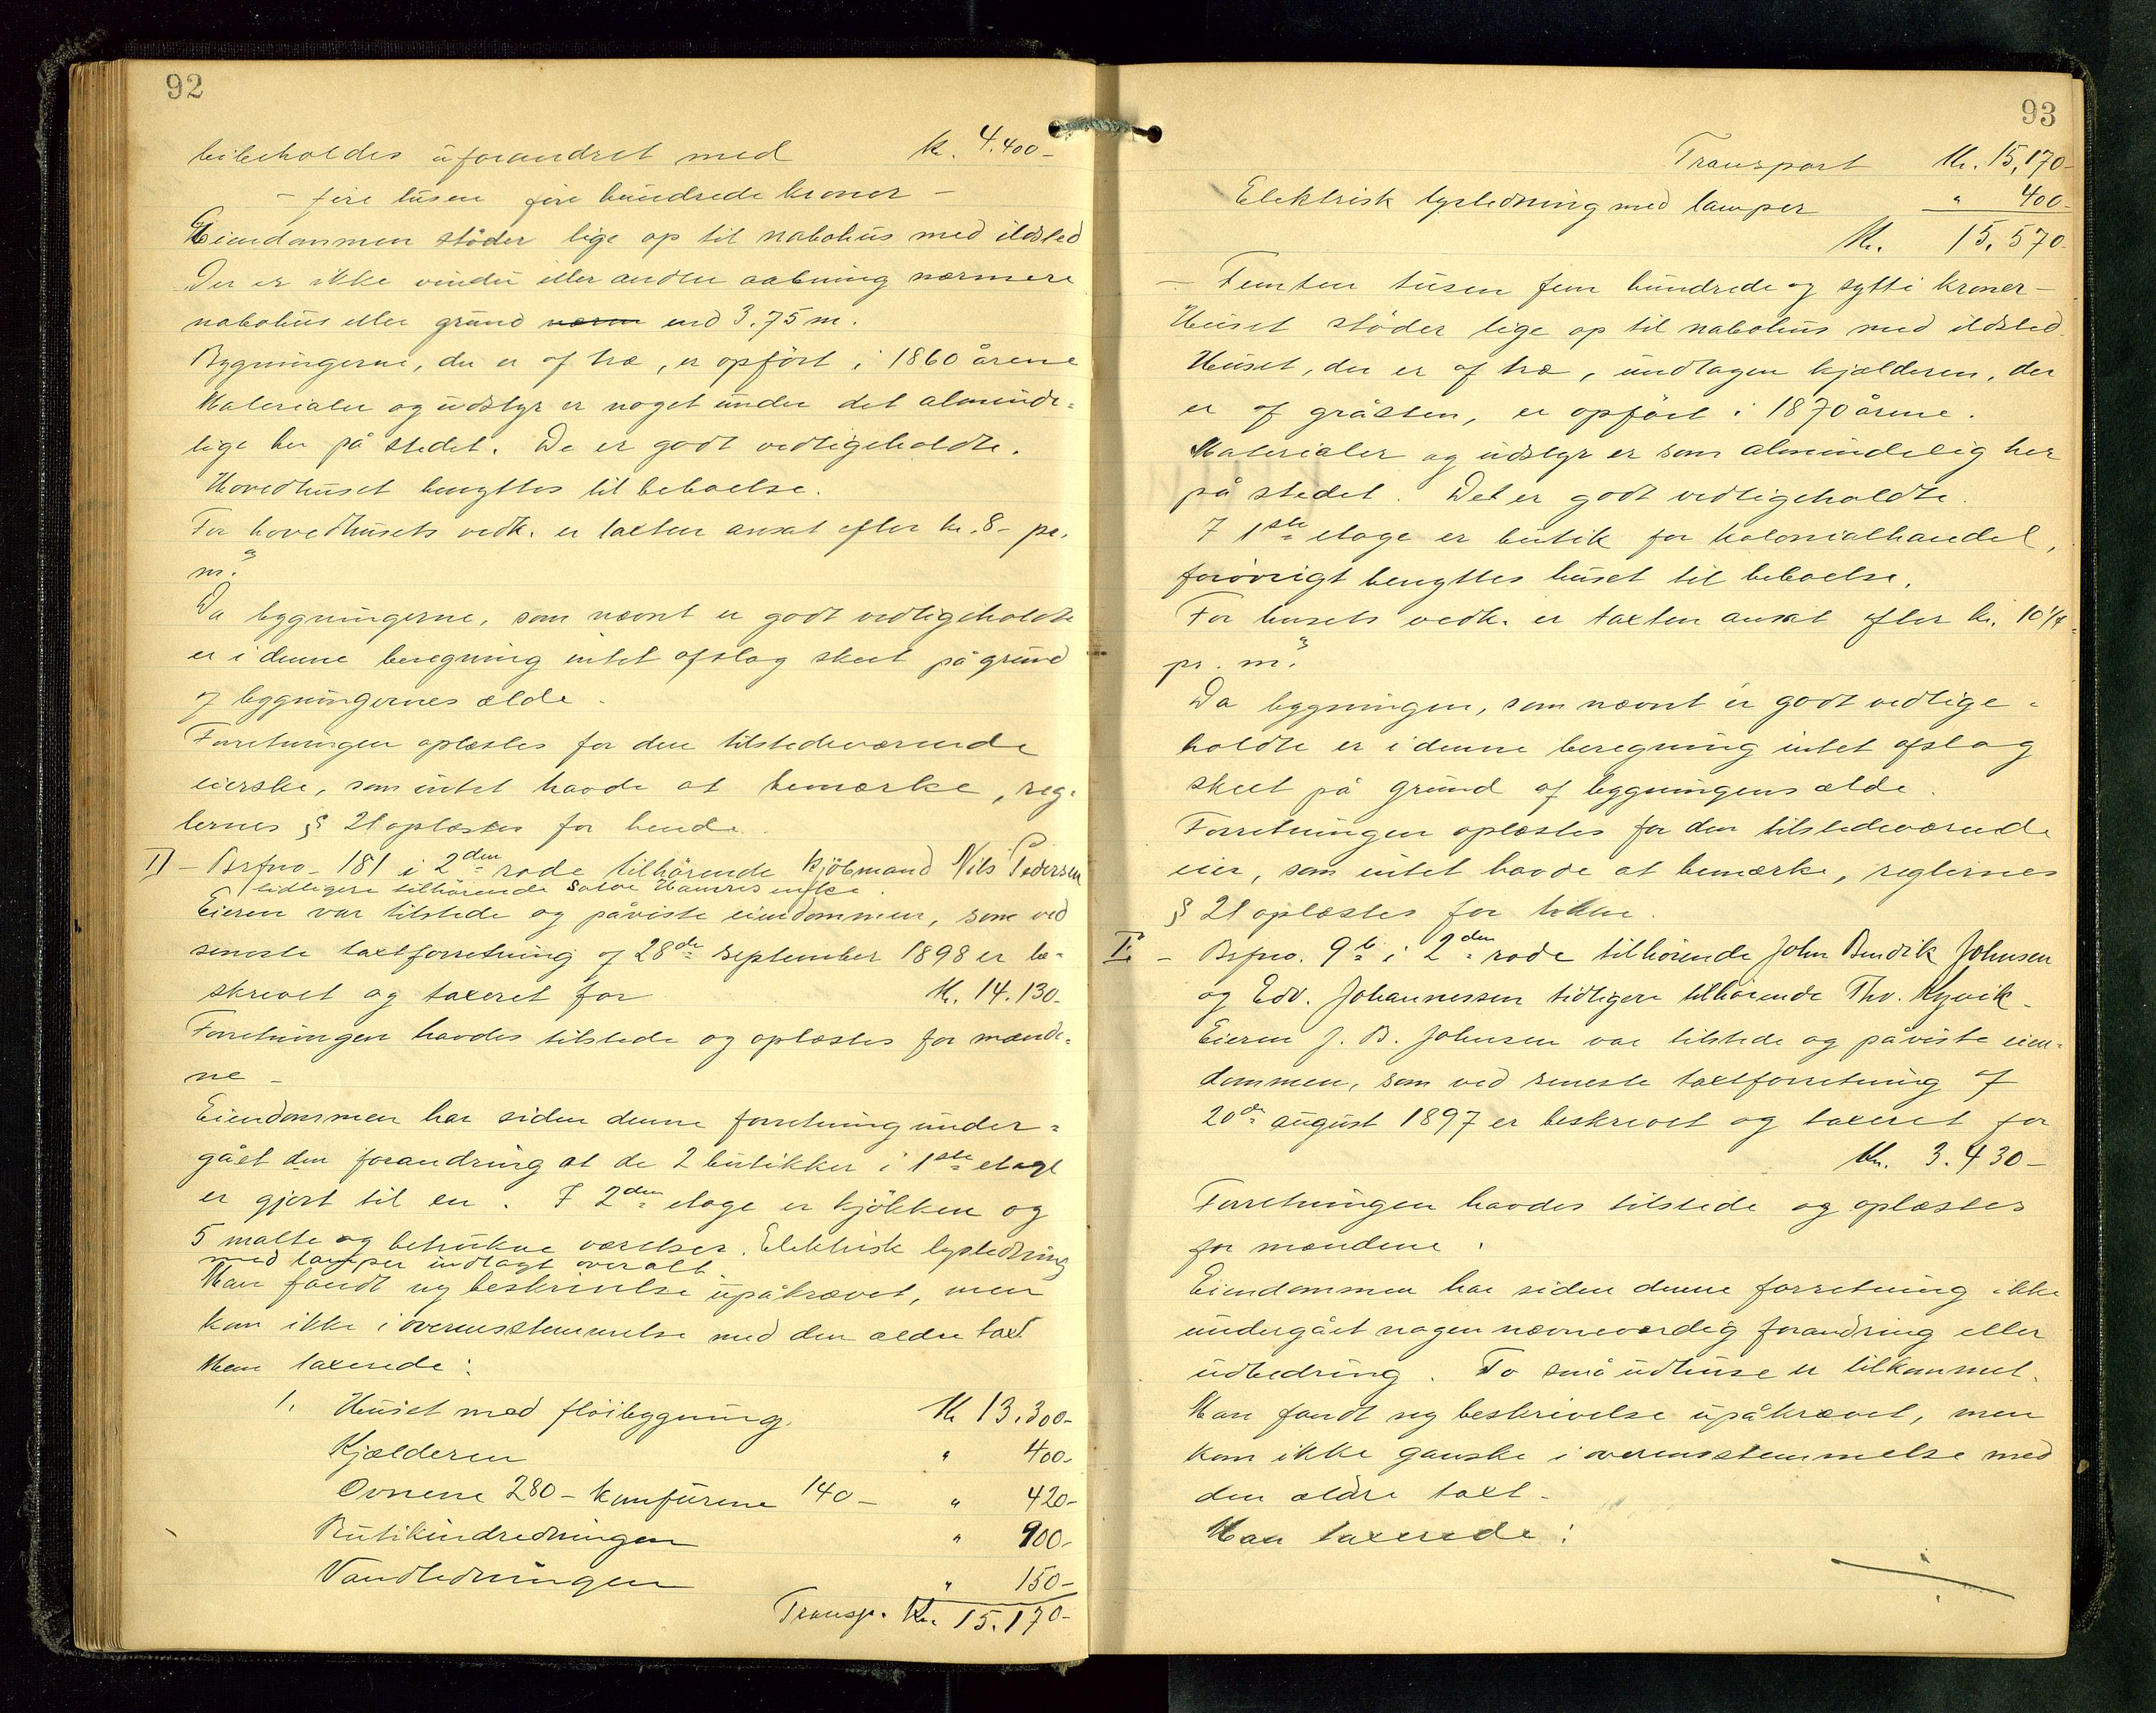 92
bibeholdes uforandret med kr. 4.400-
- fire tusen fire hundrede kroner -
Eiendommen støder lige op til nabohus med ildsted
Der er ikke vindu eller anden aabning nærmere
nabohus eller grund nærm end 3.75 m.
Bygningerne, der er af træ, er opført i 1860 årene
Materialer og udstyr er noget under det alminde=
lige her på stedet. De er godt vedligeholdte.
Hovedhuset benyttes til beboelse.
For hovedhusets vedk. er taxten ansat efter kr. 8- pr.
m.³
Da bygningerne, som nævnt er godt vedligeholdte
er i denne beregning intet afslag skeet på grund
af bygningernes ælde.
Forretningen oplæstes for den tilstedeværende
eierske, som intet havde at bemærke, reg=
lernes § 21 oplæstes for hende.
II - Brfno. 181 i 2den rode tilhørende kjöbmand Nils Pedersen
tidligere tilhörende Salve Hamres enke.
Eieren var tilstede og påviste eiendommen, som ved
seneste taxtforretning af 28de september 1898 er be=
skrevet og taxeret for kr. 14.130-
Forretningen havdes tilstede og oplæstes for mænde=
ne -
Eiendommen har siden denne forretning under=
gået den forandring at de 2 butikker i 1ste etage
er gjort til en. I 2den etage er kjökken og
5 malte og betrukne værelser. Elektrisk lysledning
med lamper indlagt overalt.
Man fandt ny beskrivelse upåkrævet, men
kom ikke i overensstemmelse med den ældre taxt
Man taxerede:
1. Huset med fløibygning. Kr 13.300-
Kjælderen " 400-
Ovnene 280- Komfurene 140- " 420-
Butikindredningen " 900-
Vandledningen " 150-
Transp. Kr. 15.170-
93
Transport Kr. 15,170-
Elektrisk lysledning med lamper " 400-
Kr. 15.570-
- Femten tusen fem hundrede og sytti kroner -
Huset støder lige op til nabohus med ildsted.
Huset, der er af træ, undtagen kjælderen, der
er af gråsten, er opført i 1870 årene.
Materialer og udstyr er som almindelig her
på stedet. Det er godt vedligeholdte.
I 1ste etage er butik for kolonialhandel,
forøvrigt benyttes huset til beboelse.
For husets vedk. er taxten ansat efter kr. 10 1/4
pr. m.³
Da bygningen, som nævnt er godt vedlige=
holdte er i denne beregning intet afslag
skeet på grund af bygningens ælde.
Forretningen oplæstes for den tilstedeværende
eier, som intet havde at bemærke, reglernes
§ 21 oplæstes for
I. - Bsfno. 9b i 2den rode tilhørende John Bendik Johnsen
og Edv. Johannessen tidligere tilhørende Thv. Kyvik -
Eieren J. B. Johnsen var tilstede og påviste eien=
dommen, som ved seneste taxtforretning af
20de august 1897 er beskrevet og taxeret for
Kr. 3.430-
Forretningen havdes tilstede og oplæstes
for mændene.
Eiendommen har siden denne forretning ikke
undergået nogen nævneværdig forandring eller
udbedring. To små udhuse er tilkommet.
Man fandt ny beskrivelse upåkrævet, men
kom ikke ganske i overensstemmelse med
den ældre taxt -
Man taxerede: